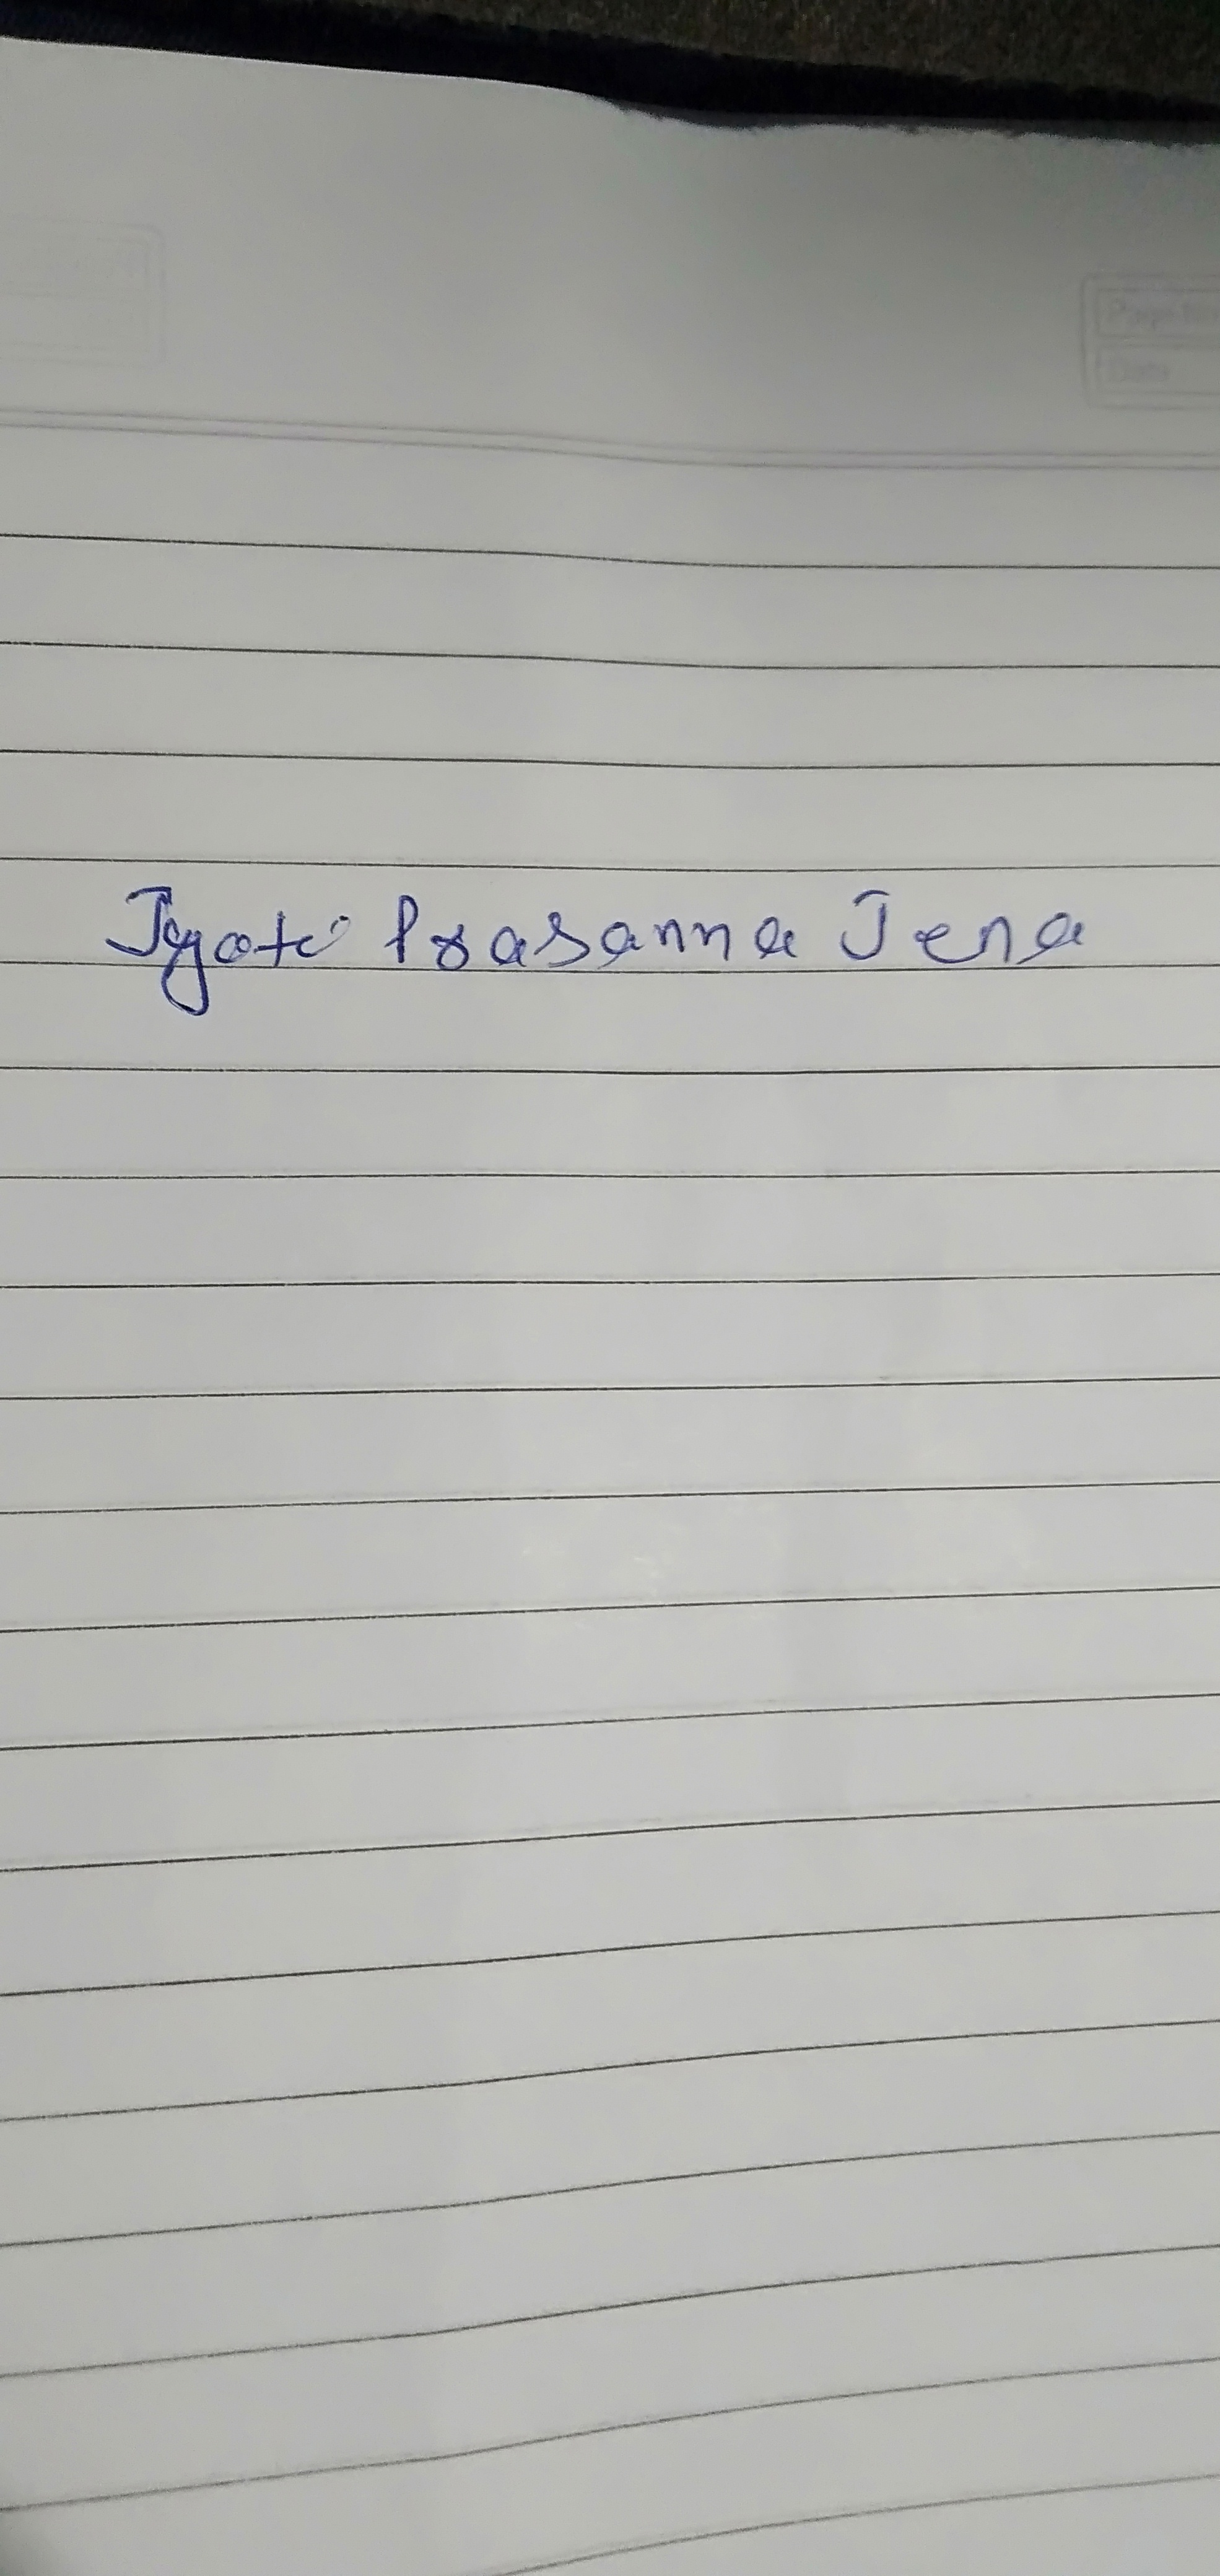 Page No
Date
Jyoti Prasanna Jena